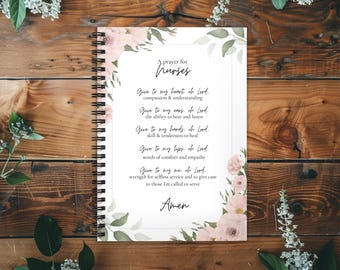 a prayer for
Nurses
Give to my heart, oh Lord,
compassion & understanding
Give to my ears, oh Lord,
the ability to hear and listen
Give to my hands, oh Lord,
skill & tenderness to heal
Give to my lips, oh Lord,
words of comfort and empathy
Give to my me, oh Lord,
strength for selfless service and to give care
to those I'm called to serve
Amen